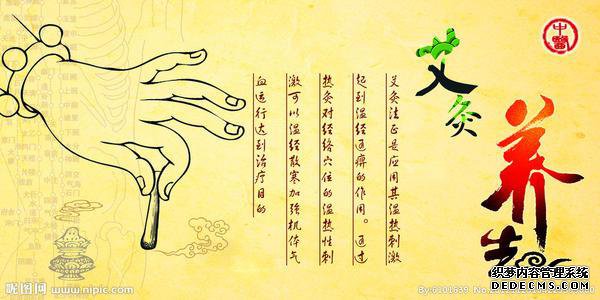 中醫
艾灸
养生
艾灸法正是应用其温热刺激
起到温经通痹的作用。通过
热灸对经络穴位的温热性刺
激可以温经散寒加强机体气
血运行达到治疗目的
昵图网
www.nipic.com
By:6101639
织梦内容管理系统
DEDECMS.COM